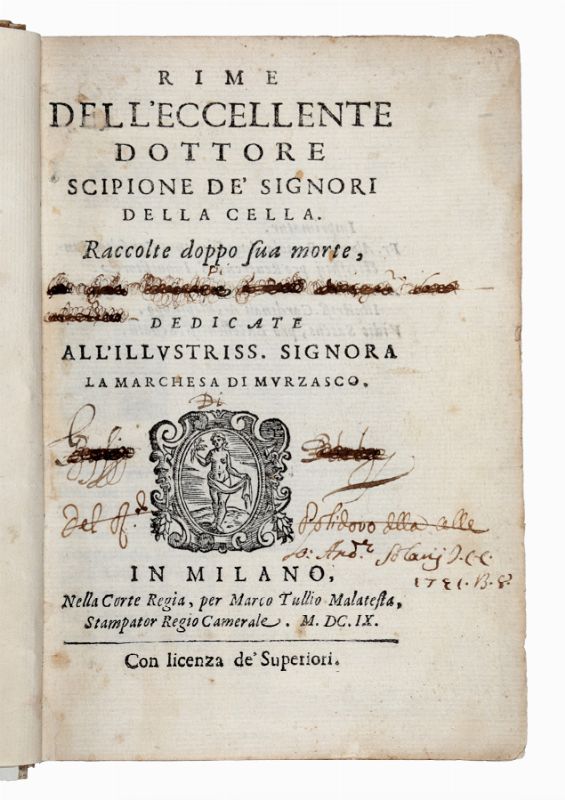 RIME
DELL'ECCELLENTE
DOTTORE
SCIPIONE DE' SIGNORI
DELLA CELLA.
Raccolte doppo ſua morte,
DEDICATE
ALL'ILLVSTRISS. SIGNORA
LA MARCHESA DI MVRZASCO.
Di
Del
IN MILANO,
Nella Corte Regia, per Marco Tullio Malateſta,
Stampator Regio Camerale. M. DC. IX.
Con licenza de' Superiori.